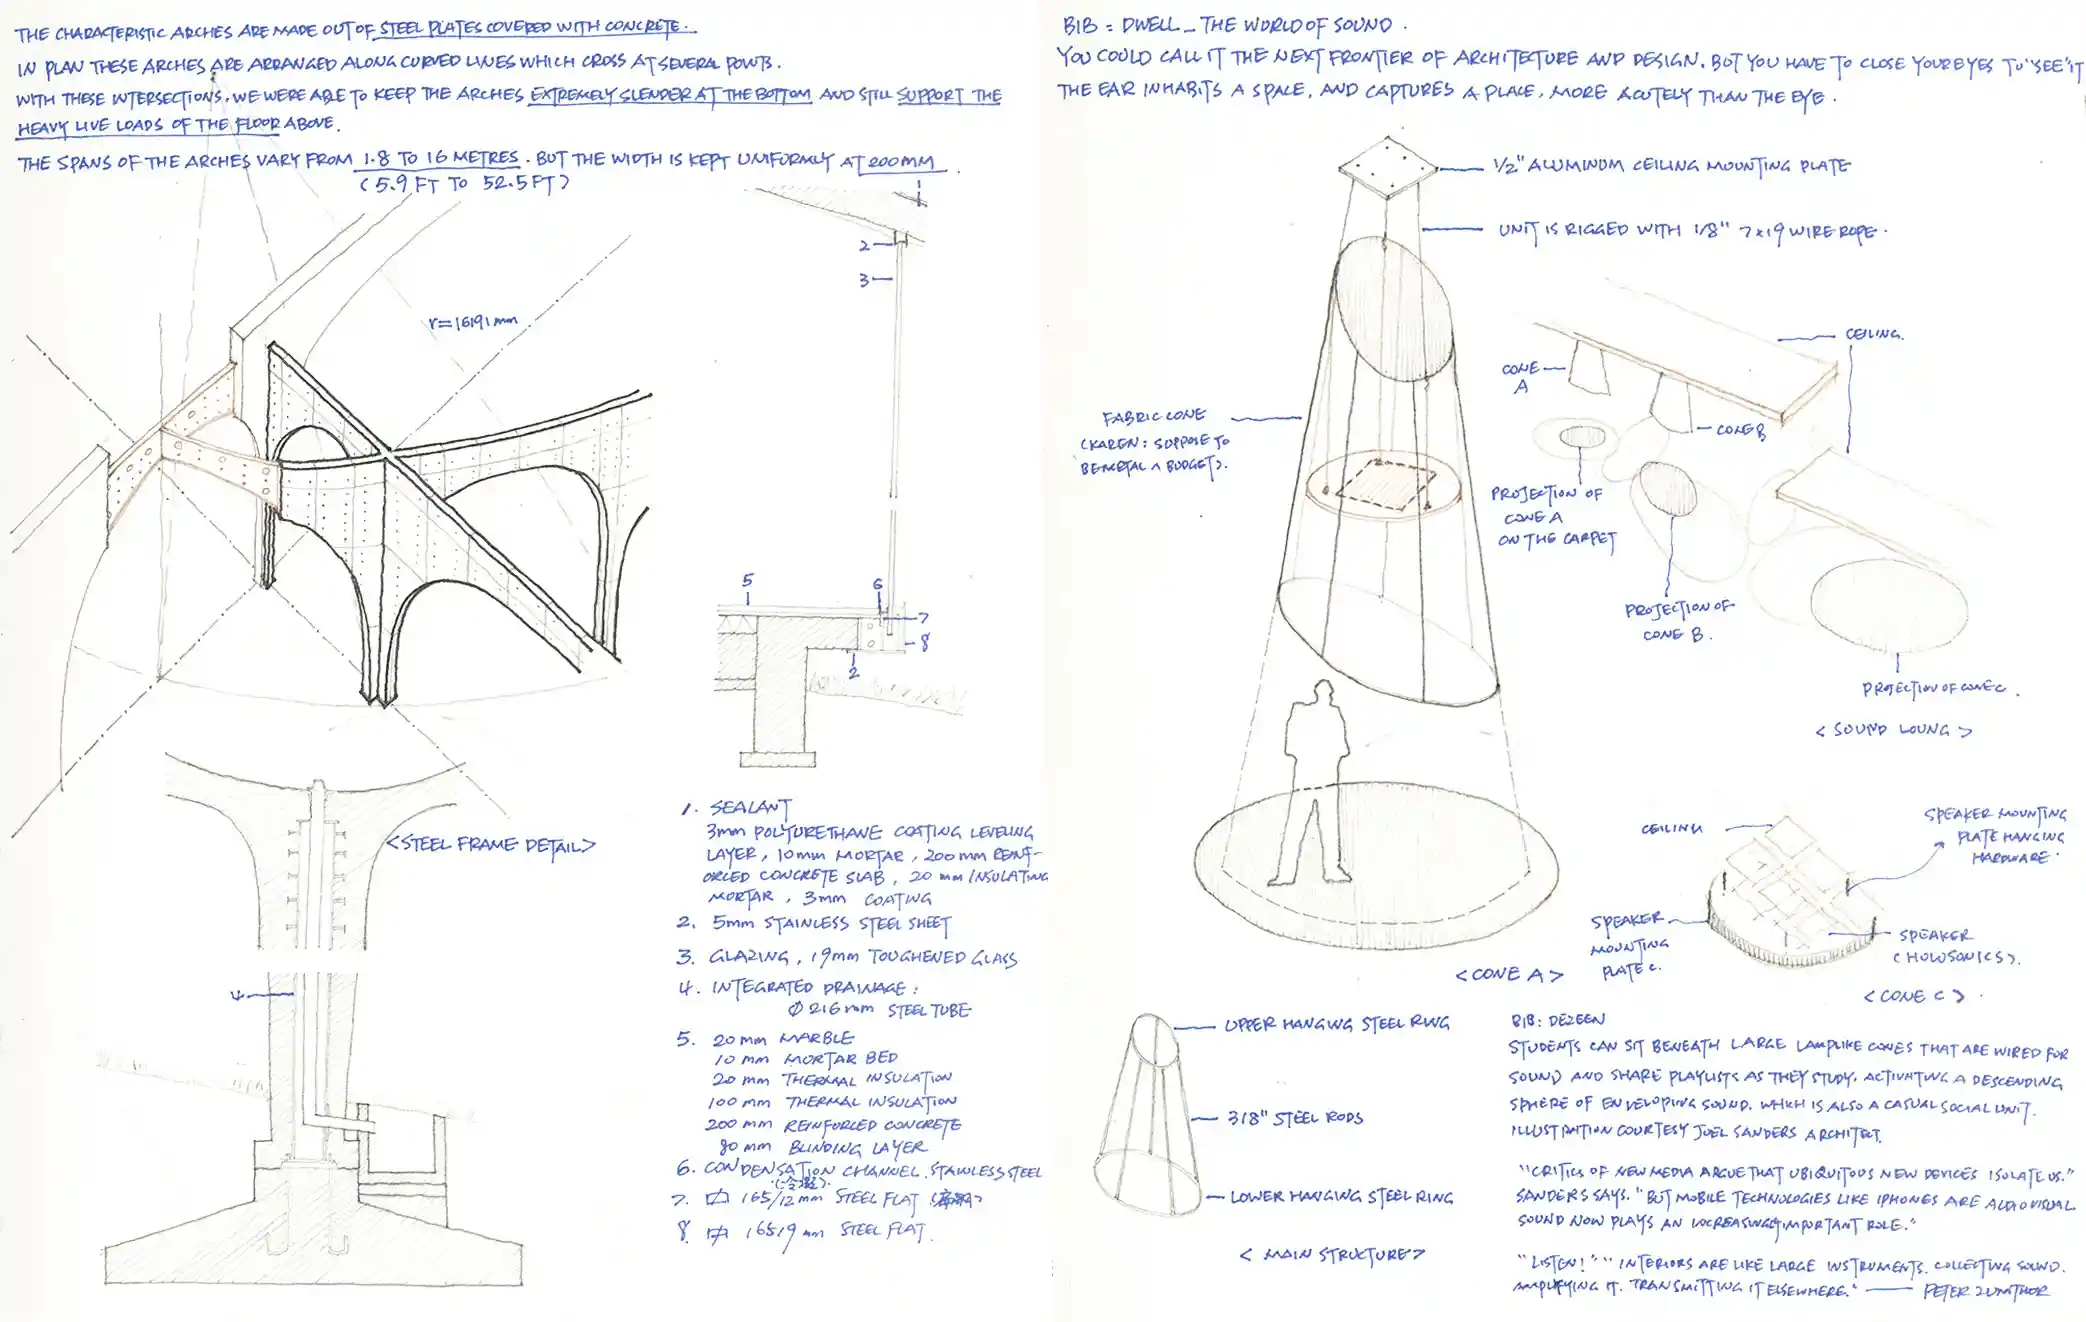 THE CHARACTERISTIC ARCHES ARE MADE OUT OF STEEL PLATES COVERED WITH CONCRETE.
IN PLAN THESE ARCHES ARE ARRANGED ALONG CURVED LINES WHICH CROSS AT SEVERAL POINTS.
WITH THESE INTERSECTIONS, WE WERE ABLE TO KEEP THE ARCHES EXTREMELY SLENDER AT THE BOTTOM AND STILL SUPPORT THE
HEAVY LIVE LOADS OF THE FLOOR ABOVE.
THE SPANS OF THE ARCHES VARY FROM 1.8 TO 16 METRES. BUT THE WIDTH IS KEPT UNIFORMLY AT 200MM.
(5.9 FT TO 52.5 FT)
r=16191mm
1
2
3
5
6
7
8
2
<STEEL FRAME DETAIL>
4
1. SEALANT
3mm POLYURETHANE COATING LEVELING
LAYER, 10mm MORTAR, 200mm REINF-
ORCED CONCRETE SLAB, 20 mm INSULATING
MORTAR, 3mm COATING
2. 5mm STAINLESS STEEL SHEET
3. GLAZING, 19mm TOUGHENED GLASS
4. INTEGRATED DRAINAGE:
Ø 216mm STEEL TUBE
5. 20 mm MARBLE
10 mm MORTAR BED
20 mm THERMAL INSULATION
100 mm THERMAL INSULATION
200 mm REINFORCED CONCRETE
80 mm BLINDING LAYER
6. CONDENSATION CHANNEL. STAINLESS STEEL
(冷凝).
7. 165/12mm STEEL FLAT
8. 165/9 mm STEEL FLAT.
BIB = DWELL _ THE WORLD OF SOUND.
YOU COULD CALL IT THE NEXT FRONTIER OF ARCHITECTURE AND DESIGN. BUT YOU HAVE TO CLOSE YOUR EYES TO "SEE" IT
THE EAR INHABITS A SPACE, AND CAPTURES A PLACE, MORE ACUTELY THAN THE EYE.
1/2" ALUMINUM CEILING MOUNTING PLATE
UNIT IS RIGGED WITH 1/8" 7x19 WIRE ROPE.
FABRIC CONE
(KAREN: SUPPOSE TO
BE METAL ^ BUDGET).
CEILING.
CONE
A
CONE B
PROJECTION OF
CONE A
ON THE CARPET
PROJECTION OF
CONE B.
PROJECTION OF CONE C.
<SOUND LOUNG>
CEILING
SPEAKER MOUNTING
PLATE HANGING
HARDWARE.
SPEAKER
MOUNTING
PLATE C.
SPEAKER
(HOLOSONICS).
<CONE A>
<CONE C>.
UPPER HANGING STEEL RING
3/8" STEEL RODS
LOWER HANGING STEEL RING
<MAIN STRUCTURE>
BIB: DEZEEN
STUDENTS CAN SIT BENEATH LARGE LAMPLIKE CONES THAT ARE WIRED FOR
SOUND AND SHARE PLAYLISTS AS THEY STUDY. ACTIVATING A DESCENDING
SPHERE OF ENVELOPING SOUND. WHICH IS ALSO A CASUAL SOCIAL UNIT.
ILLUSTRATION COURTESY JOEL SANDERS ARCHITECT.
"CRITICS OF NEW MEDIA ARGUE THAT UBIQUITOUS NEW DEVICES ISOLATE US."
SANDERS SAYS. "BUT MOBILE TECHNOLOGIES LIKE IPHONES ARE AUDIOVISUAL
SOUND NOW PLAYS AN INCREASINGLY IMPORTANT ROLE."
"LISTEN!" "INTERIORS ARE LIKE LARGE INSTRUMENTS. COLLECTING SOUND.
AMPLIFYING IT. TRANSMITTING IT ELSEWHERE." — PETER ZUMTHOR